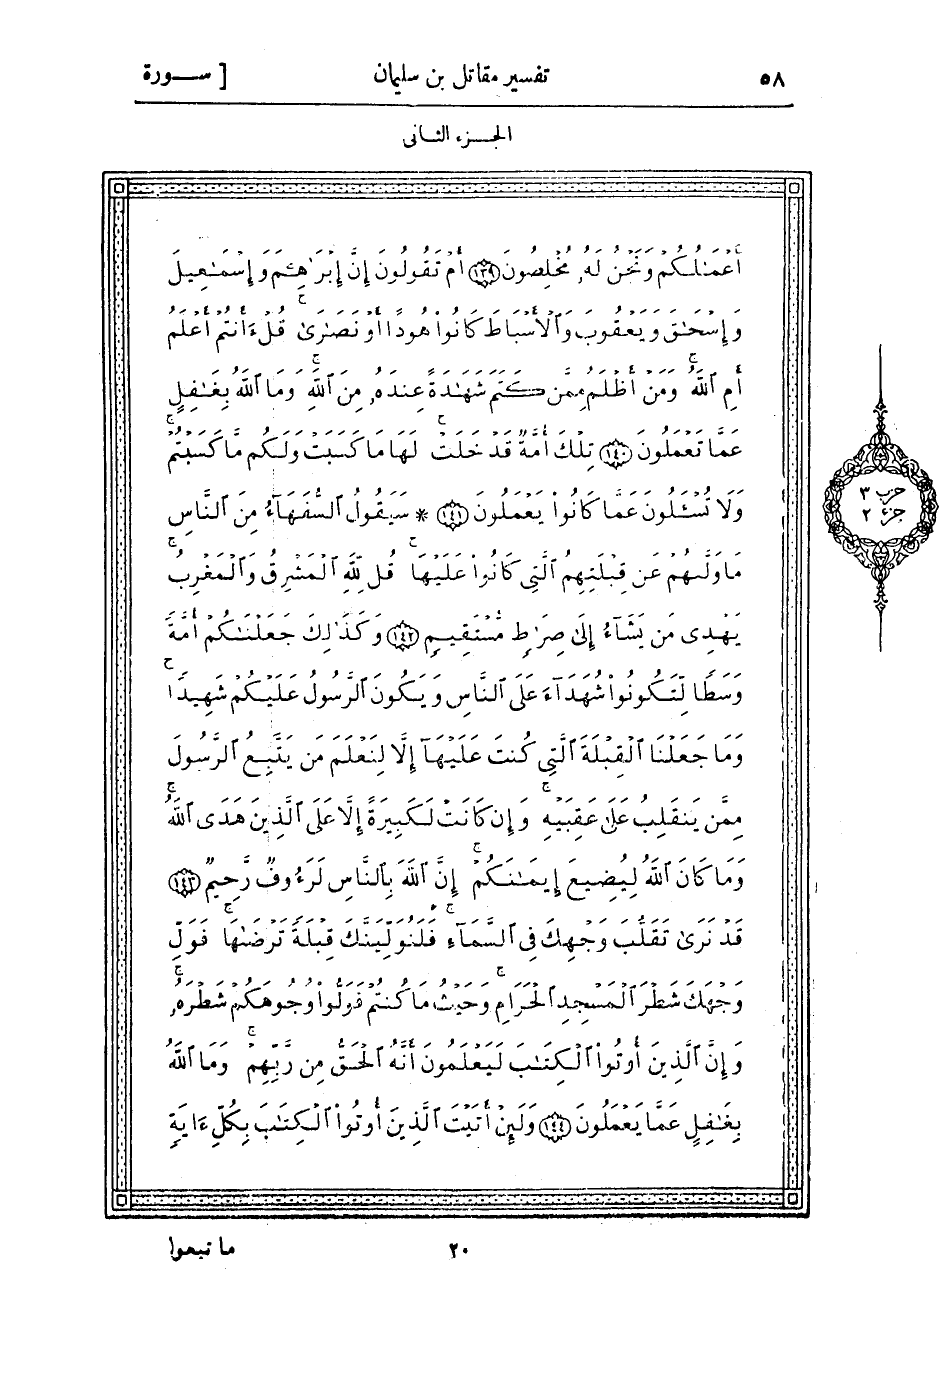 ٥٨ تفسير مقاتل بن سليمان [ ســورة
الجـزء الثـانى
أَعْمَٰلُكُمْ وَنَحْنُ لَهُۥ مُخْلِصُونَ ١٣٩ أَمْ تَقُولُونَ إِنَّ إِبْرَٰهِـۧمَ وَإِسْمَٰعِيلَ
وَإِسْحَٰقَ وَيَعْقُوبَ وَٱلْأَسْبَاطَ كَانُوا۟ هُودًا أَوْ نَصَٰرَىٰ ۗ قُلْ ءَأَنتُمْ أَعْلَمُ
أَمِ ٱللَّهُ ۗ وَمَنْ أَظْلَمُ مِمَّن كَتَمَ شَهَٰدَةً عِندَهُۥ مِنَ ٱللَّهِ ۗ وَمَا ٱللَّهُ بِغَٰفِلٍ
عَمَّا تَعْمَلُونَ ١٤٠ تِلْكَ أُمَّةٌ قَدْ خَلَتْ ۖ لَهَا مَا كَسَبَتْ وَلَكُم مَّا كَسَبْتُمْ ۖ
وَلَا تُسْـَٔلُونَ عَمَّا كَانُوا۟ يَعْمَلُونَ ١٤١ * سَيَقُولُ ٱلسُّفَهَآءُ مِنَ ٱلنَّاسِ
مَا وَلَّىٰهُمْ عَن قِبْلَتِهِمُ ٱلَّتِى كَانُوا۟ عَلَيْهَا ۚ قُل لِّلَّهِ ٱلْمَشْرِقُ وَٱلْمَغْرِبُ ۚ
يَهْدِى مَن يَشَآءُ إِلَىٰ صِرَٰطٍ مُّسْتَقِيمٍ ١٤٢ وَكَذَٰلِكَ جَعَلْنَٰكُمْ أُمَّةً
وَسَطًا لِّتَكُونُوا۟ شُهَدَآءَ عَلَى ٱلنَّاسِ وَيَكُونَ ٱلرَّسُولُ عَلَيْكُمْ شَهِيدًا ۗ
وَمَا جَعَلْنَا ٱلْقِبْلَةَ ٱلَّتِى كُنتَ عَلَيْهَآ إِلَّا لِنَعْلَمَ مَن يَتَّبِعُ ٱلرَّسُولَ
مِمَّن يَنقَلِبُ عَلَىٰ عَقِبَيْهِ ۚ وَإِن كَانَتْ لَكَبِيرَةً إِلَّا عَلَى ٱلَّذِينَ هَدَى ٱللَّهُ ۗ
وَمَا كَانَ ٱللَّهُ لِيُضِيعَ إِيمَٰنَكُمْ ۚ إِنَّ ٱللَّهَ بِٱلنَّاسِ لَرَءُوفٌ رَّحِيمٌ ١٤٣
قَدْ نَرَىٰ تَقَلُّبَ وَجْهِكَ فِى ٱلسَّمَآءِ ۖ فَلَنُوَلِّيَنَّكَ قِبْلَةً تَرْضَىٰهَا ۚ فَوَلِّ
وَجْهَكَ شَطْرَ ٱلْمَسْجِدِ ٱلْحَرَامِ ۚ وَحَيْثُ مَا كُنتُمْ فَوَلُّوا۟ وُجُوهَكُمْ شَطْرَهُۥ ۗ
وَإِنَّ ٱلَّذِينَ أُوتُوا۟ ٱلْكِتَٰبَ لَيَعْلَمُونَ أَنَّهُ ٱلْحَقُّ مِن رَّبِّهِمْ ۗ وَمَا ٱللَّهُ
بِغَٰفِلٍ عَمَّا يَعْمَلُونَ ١٤٤ وَلَئِنْ أَتَيْتَ ٱلَّذِينَ أُوتُوا۟ ٱلْكِتَٰبَ بِكُلِّ ءَايَةٍ
حزب ٣
جزء ٢
ما تبعوا
٢٠